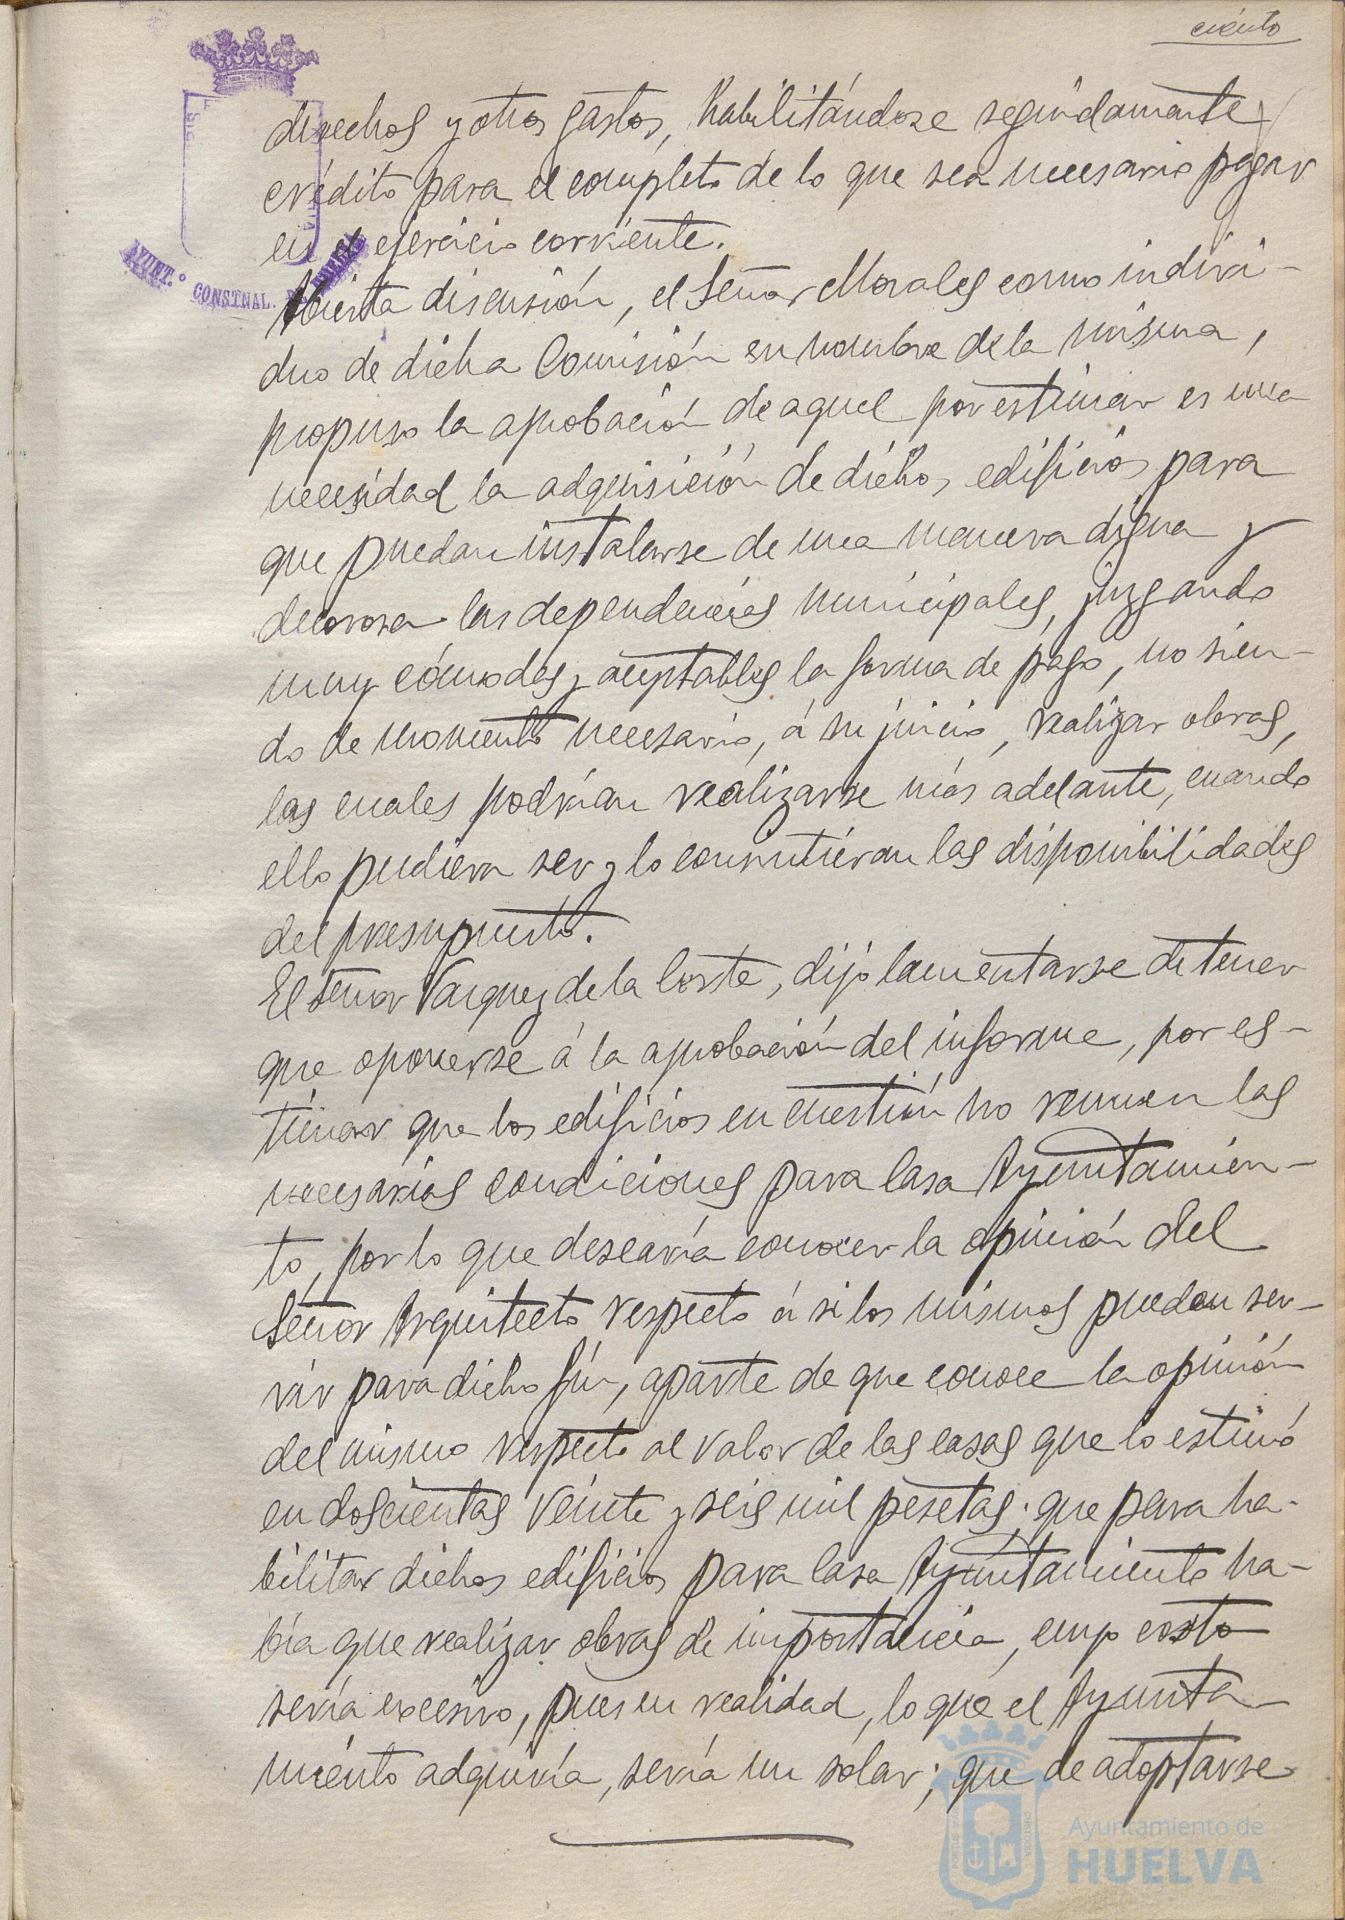 ciento
derechos y otros gastos, habilitándose seguidamente
crédito para el completo de lo que sea necesario pagar
en el ejercicio corriente.
Abierta discusión, el Señor Morales como indivi-
duo de dicha Comisión en nombre de la misma,
propuso la aprobación de aquel por estimar es una
necesidad la adquisición de dichos edificios para
que puedan instalarse de una manera digna y
decorosa las dependencias municipales, juzgando
muy cómodas y aceptables la forma de pago, no sien-
do de momento necesario, á su juicio, realizar obras,
las cuales podrían realizarse más adelante, cuando
ello pudiera ser y lo consintieran las disponibilidades
del presupuesto.
El Señor Vazquez de la Corte, dijo lamentarse de tener
que oponerse á la aprobación del informe, por es-
timar que los edificios en cuestión no reunen las
necesarias condiciones para Casa Ayuntamien-
to, por lo que desearía conocer la opinión del
Señor Arquitecto respecto á si los mismos pueden ser-
vir para dicho fin, aparte de que conoce la opinión
del mismo respecto al valor de las casas que lo estimó
en doscientas veinte y seis mil pesetas; que para ha-
bilitar dichos edificios para Casa Ayuntamiento ha-
bía que realizar obras de importancia, cuyo costo
sería excesivo, pues en realidad, lo que el Ayunta-
miento adquiría, sería un solar; que de adoptarse
AYUNT.º CONSTNAL. DE HUELVA
Ayuntamiento de
HUELVA